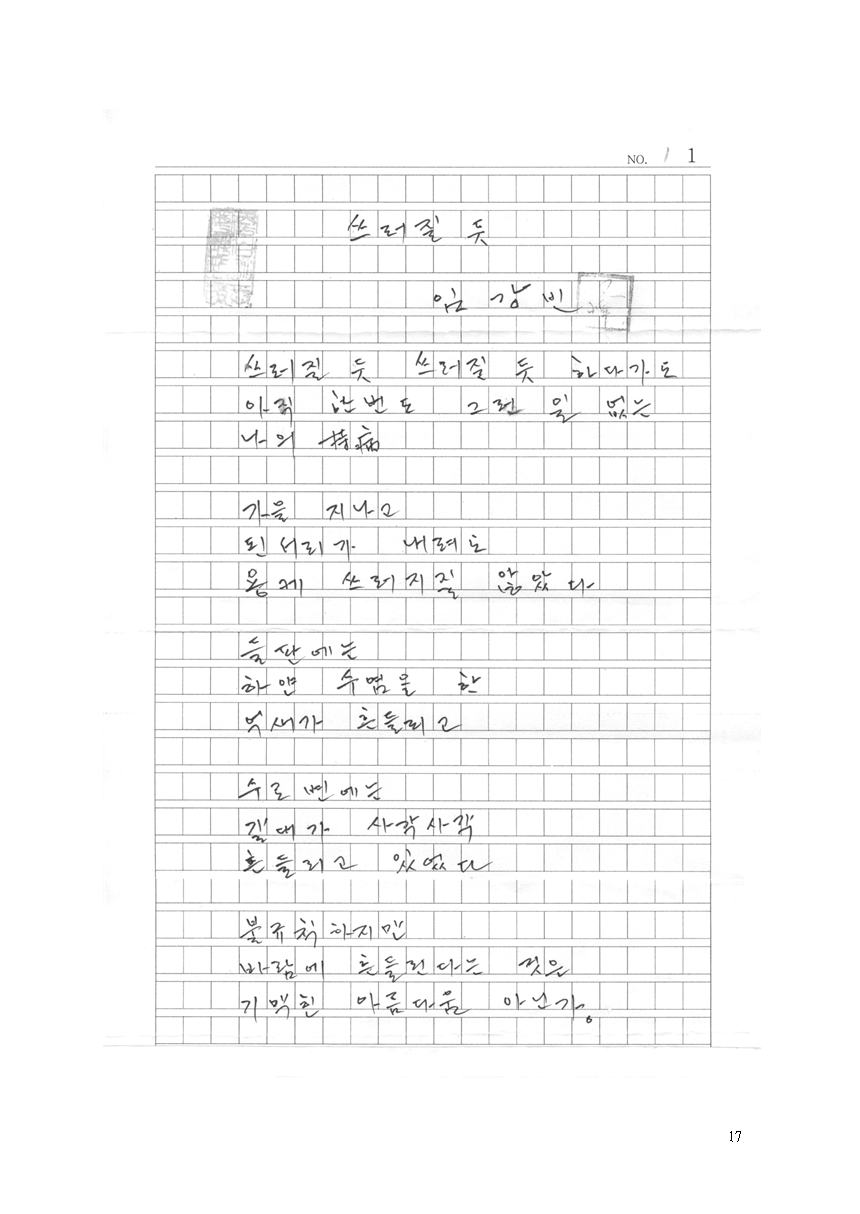 NO. 1 1
쓰러질 듯
임강빈
쓰러질 듯 쓰러질 듯 하다가도
아직 한번도 그런 일 없는
나의 持病
가을 지나고
된서리가 내려도
용케 쓰러지질 않았다
들판에는
하얀 수염을 한
억새가 흔들리고
수로변에는
갈대가 사각사각
흔들리고 있었다
불규칙하지만
바람에 흔들린다는 것은
기막힌 아름다움 아닌가。
17